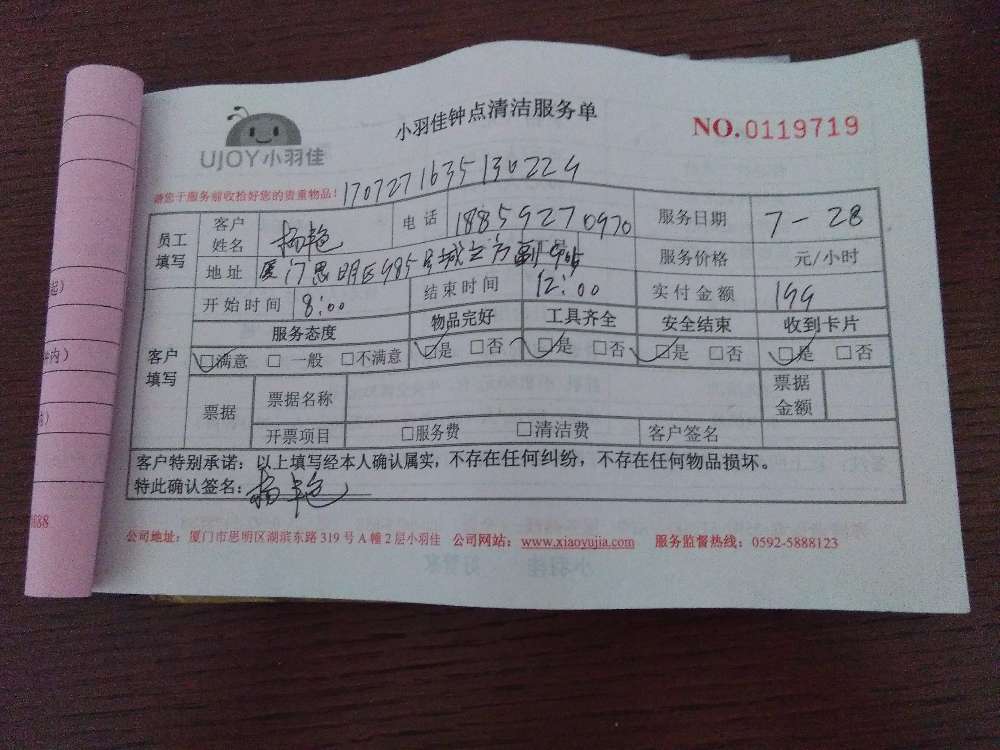 小羽佳钟点清洁服务单
NO.0119719
UJOY小羽佳
请您于服务前收拾好您的贵重物品! 170727163513022G
员工填写 客户姓名 杨艳 电话 18859270970 服务日期 7-28
地址 厦门思明区985号城立方 服务价格 元/小时
开始时间 8:00 结束时间 12:00 实付金额 199
客户填写 服务态度 物品完好 工具齐全 安全结束 收到卡片
☑满意 □一般 □不满意 ☑是 □否 ☑是 □否 ☑是 □否 ☑是 □否
票据 票据名称 票据金额
开票项目 □服务费 □清洁费 客户签名
客户特别承诺:以上填写经本人确认属实,不存在任何纠纷,不存在任何物品损坏。
特此确认签名:杨艳
公司地址:厦门市思明区湖滨东路319号A幢2层小羽佳 公司网站:www.xiaoyujia.com 服务监督热线:0592-5888123